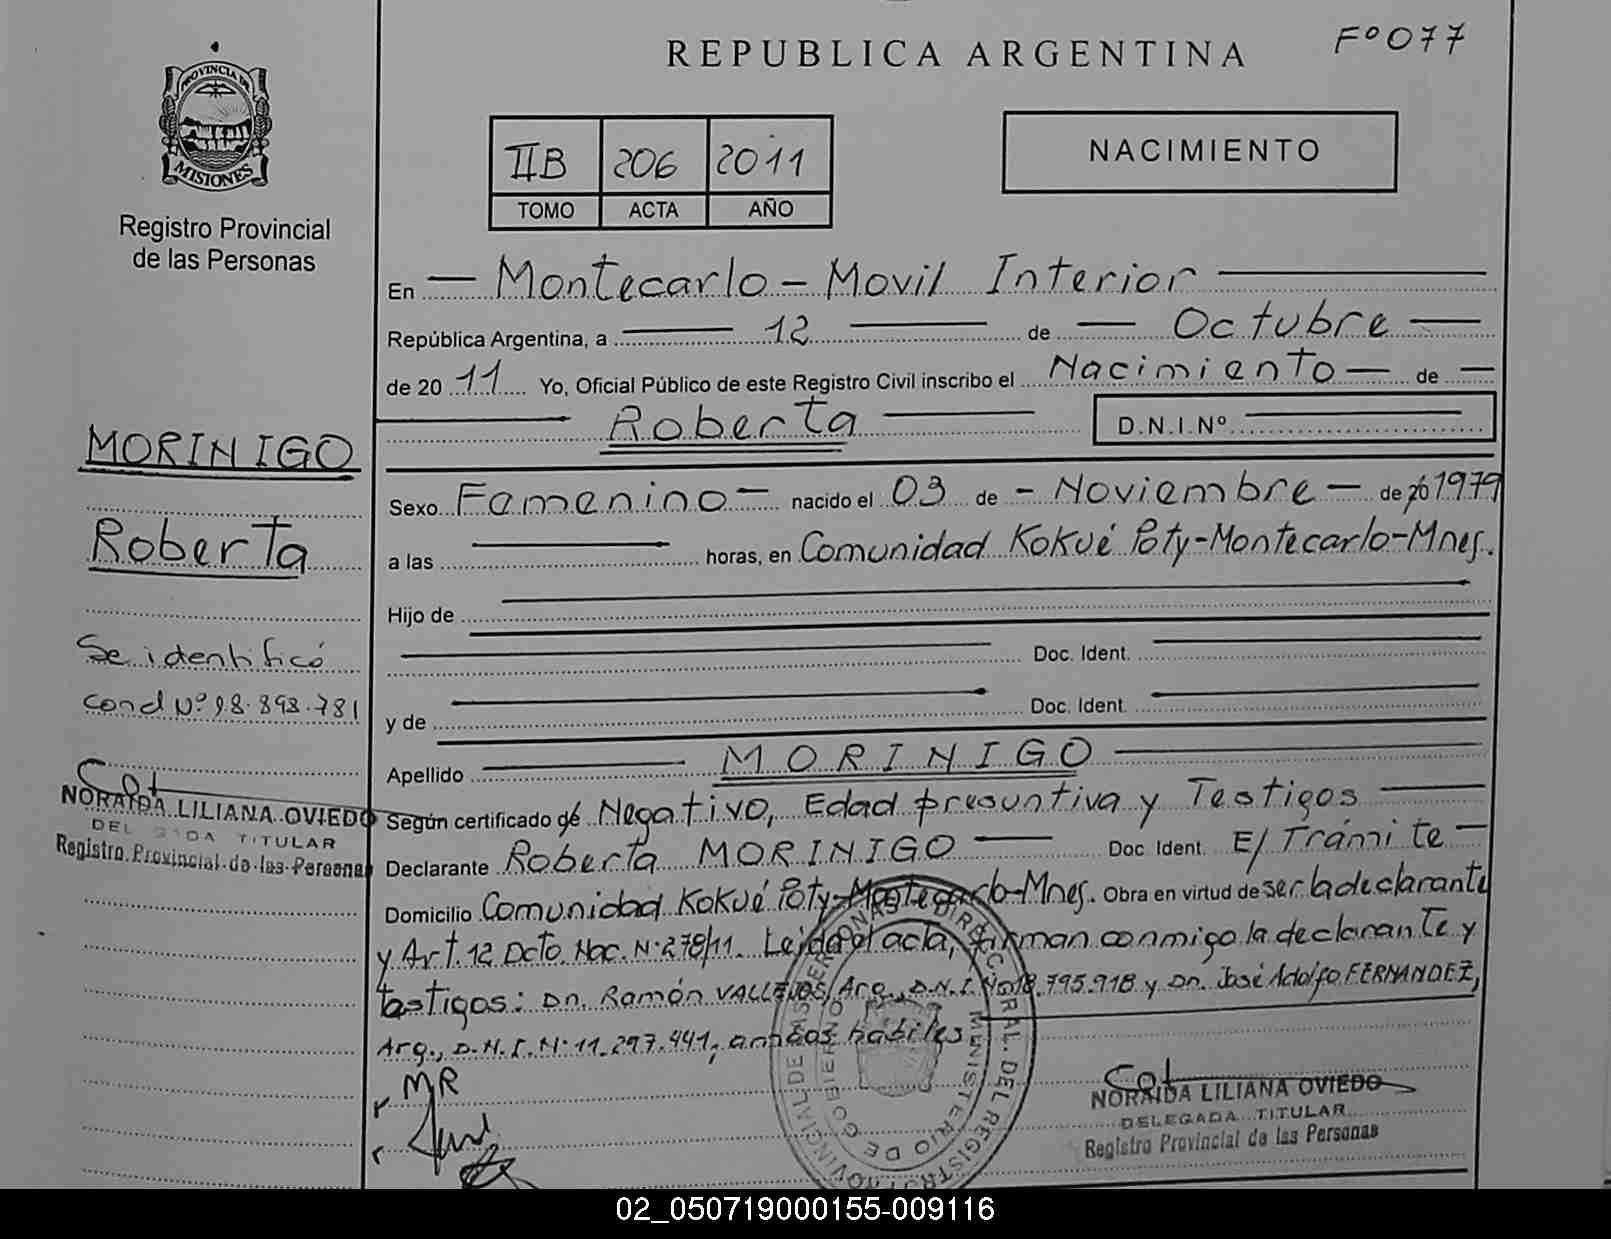 Fº 077
REPUBLICA ARGENTINA
PROVINCIA DE
MISIONES
Registro Provincial
de las Personas
NACIMIENTO
IIB 206 2011
TOMO ACTA AÑO
En — Montecarlo - Movil Interior —
República Argentina, a — 12 — de — Octubre —
de 20 11 Yo, Oficial Público de este Registro Civil inscribo el Nacimiento — de —
— Roberta — D.N.I.Nº —
MORINIGO
Roberta
Se identificó
con d Nº 98.893.781
Cot
NORAIDA LILIANA OVIEDO
DELEGADA TITULAR
Registro Provincial de las Personas
Sexo Femenino — nacido el 03 de - Noviembre — de 20 1979
a las — horas, en Comunidad Kokué Poty-Montecarlo-Mnes.
Hijo de —
— Doc. Ident. —
y de — Doc. Ident. —
Apellido — MORINIGO —
Según certificado de Negativo, Edad presuntiva y Testigos —
Declarante Roberta MORINIGO — Doc Ident. E/Trámite —
Domicilio Comunidad Kokué Poty-Montecarlo-Mnes. Obra en virtud de ser la declarante
y Art. 12 Dcto. Nac. Nº 278/11. Leida el acta, firman conmigo la declarante y
testigos: Dn. Ramón VALLEJOS, Arg., D.N.I. Nº 18.795.918 y Dn. José Adolfo FERNANDEZ,
Arg., D.N.I. Nº 11.297.441, ambos hábiles
MR
Cot
NORAIDA LILIANA OVIEDO
DELEGADA TITULAR
Registro Provincial de las Personas
02_050719000155-009116